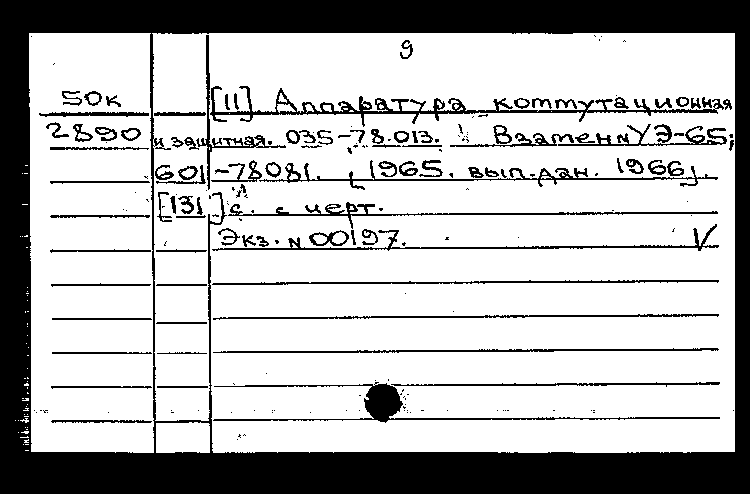 9
50к [11] Аппаратура коммутационная
2890 и защитная. 035-78.013. Взамен N УЭ-65;
601-78081. [1965. вып.дан. 1966].
[131] с. с черт.
Экз. N 00197. V